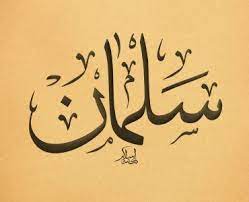 سَلْمَان